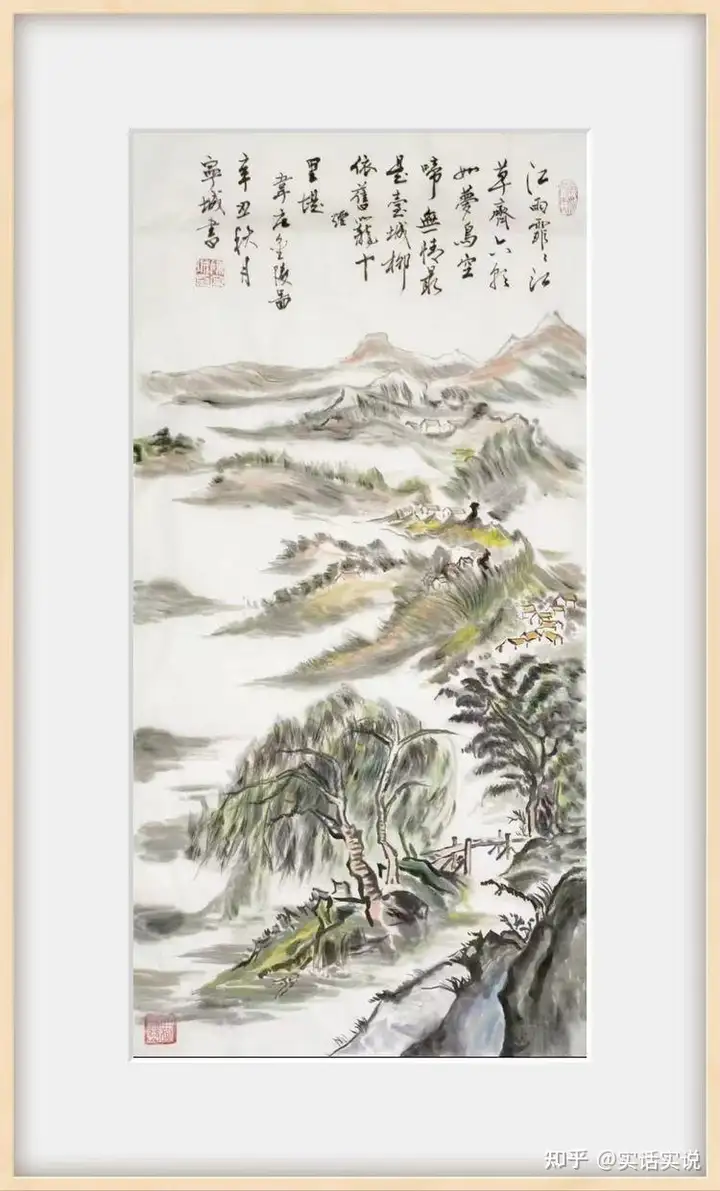 江雨霏〻江
草齊六朝
如夢鳥空
啼無情最
是臺城柳
依舊籠十
煙
里堤
韋莊金陵圖
辛丑秋月
寧城書
知乎 @实话实说